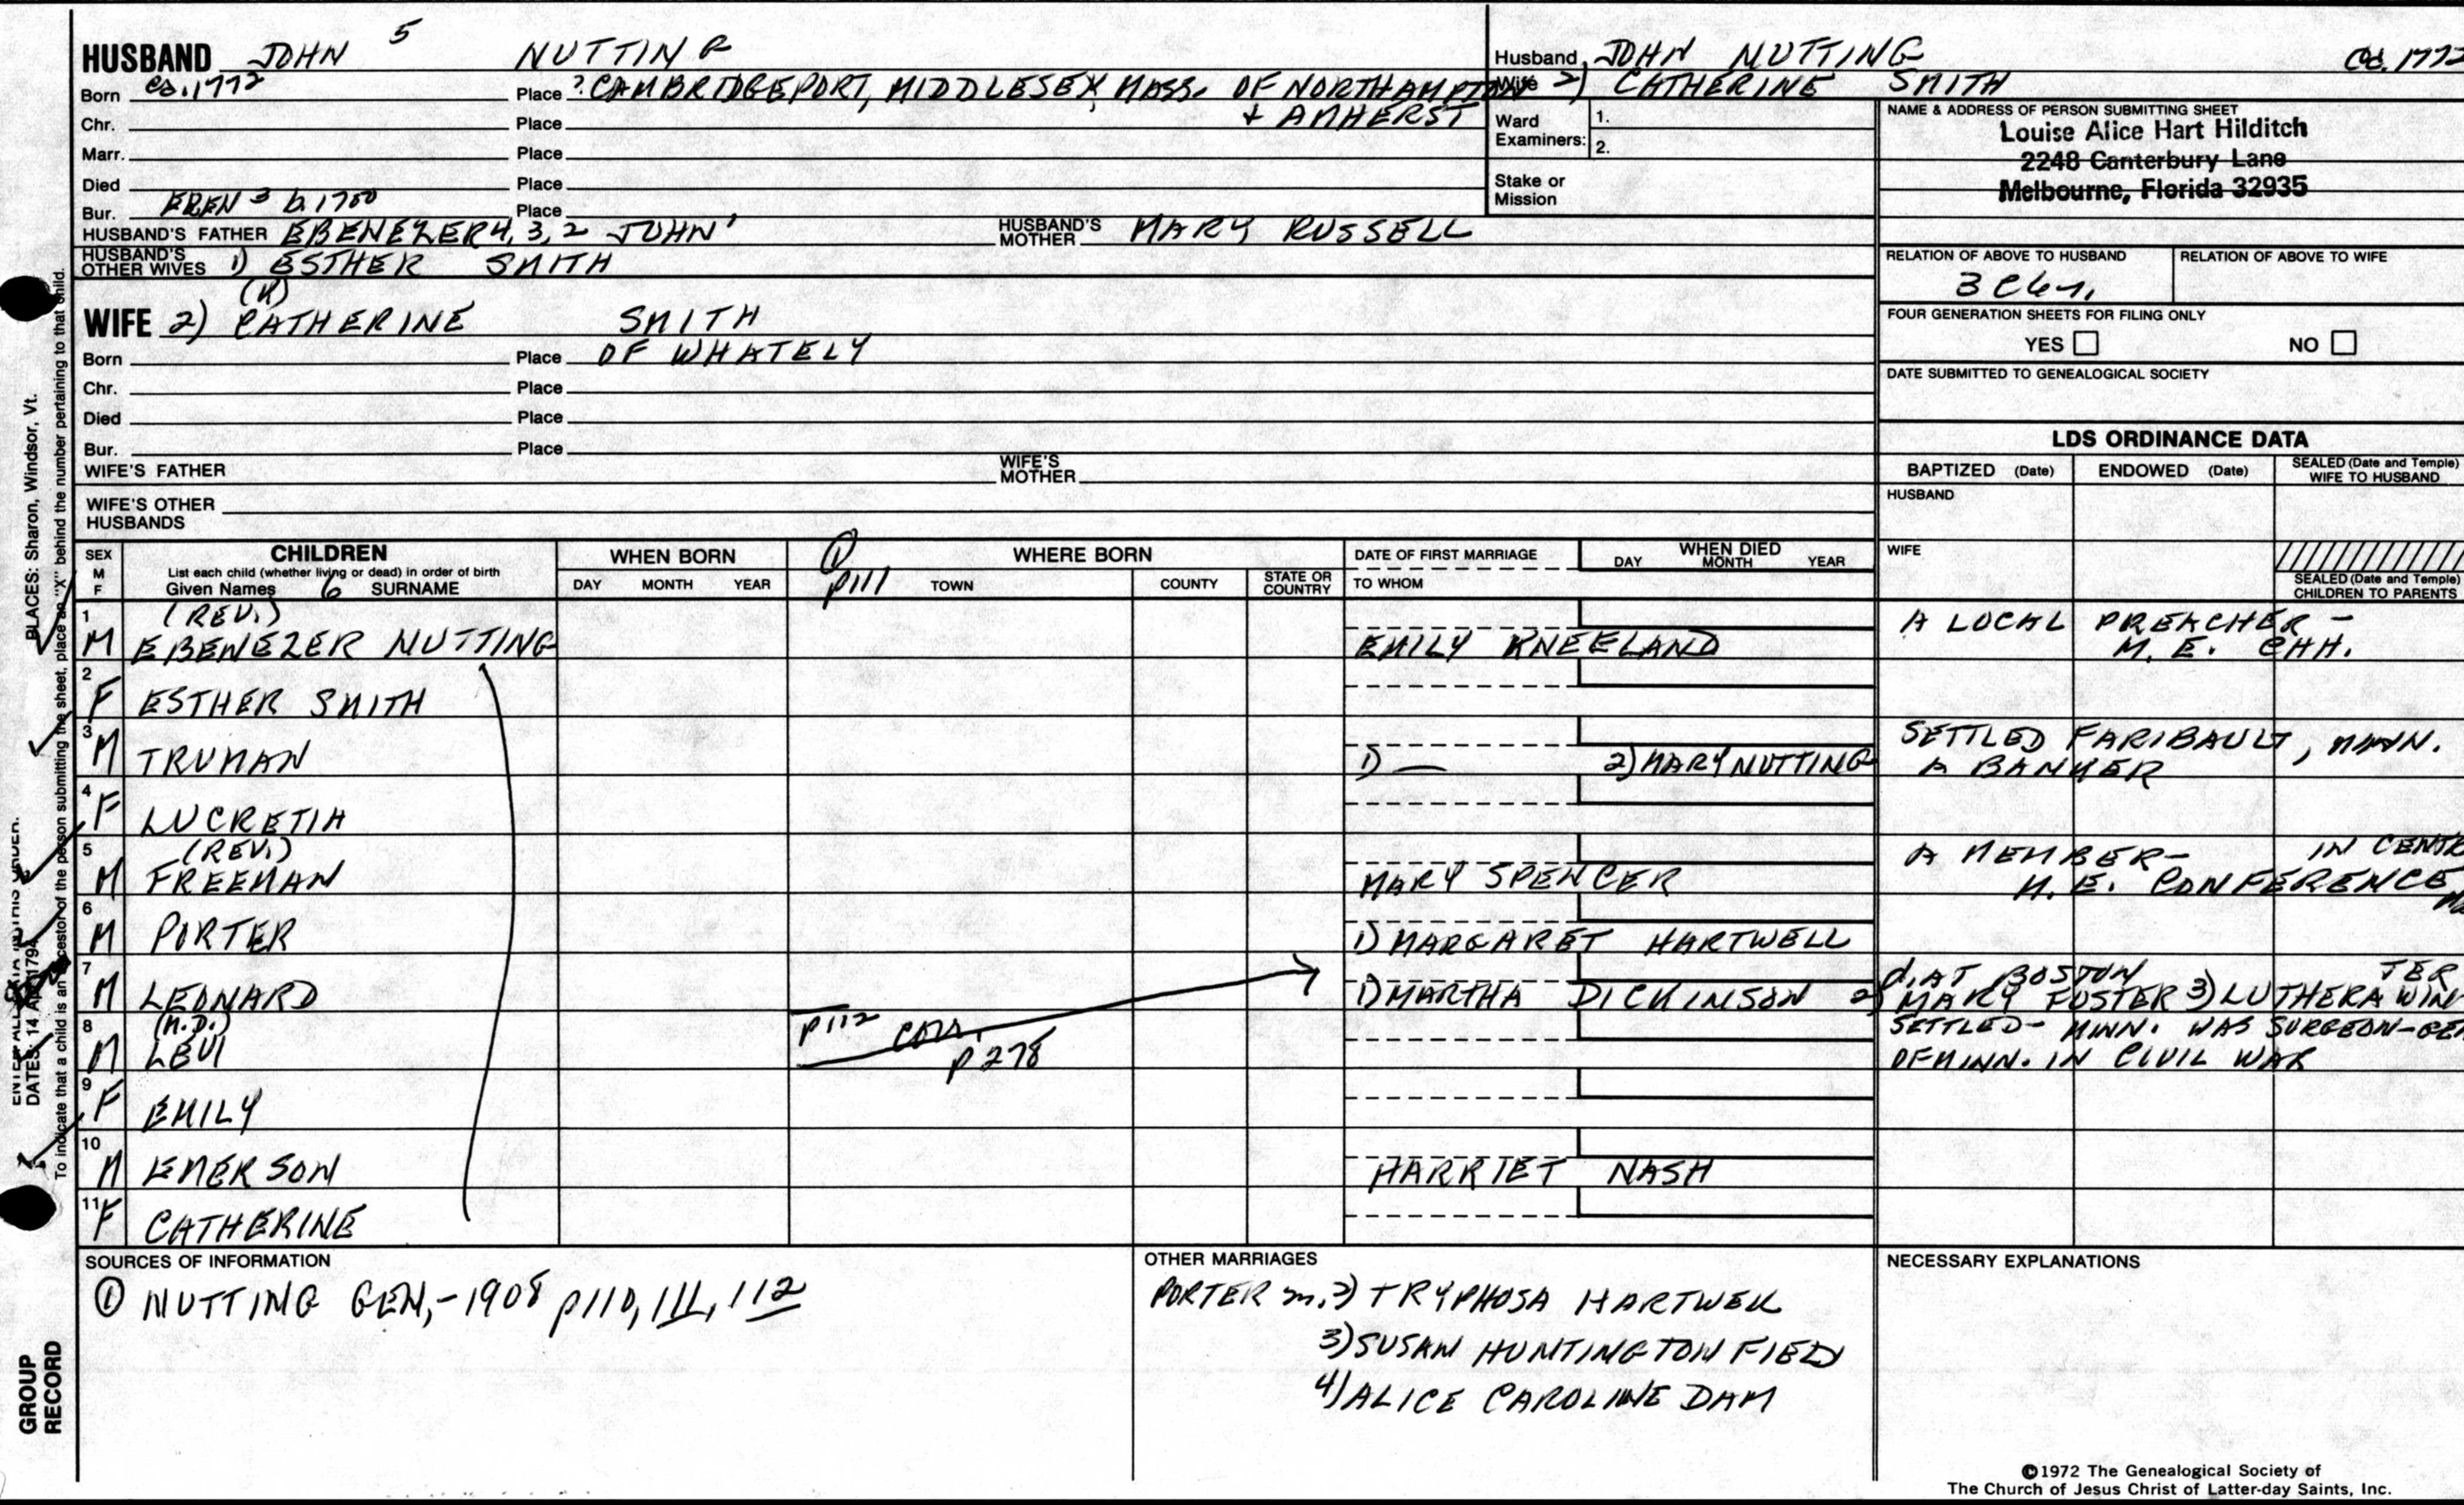 HUSBAND JOHN 5 NUTTING
Born ca. 1772 Place ? CAMBRIDGEPORT, MIDDLESEX, MASS. OF NORTHAMPTON
Chr. Place & AMHERST
Marr. Place
Died Place
Bur. EBEN 3 b. 1750 Place
HUSBAND'S FATHER EBENEZER 4, 3, 2 JOHN' HUSBAND'S MOTHER MARY RUSSELL
HUSBAND'S OTHER WIVES 1) ESTHER SMITH
(K)
WIFE 2) CATHERINE SMITH
Born Place OF WHATELY
Chr. Place
Died Place
Bur. Place
WIFE'S FATHER WIFE'S MOTHER
WIFE'S OTHER HUSBANDS
Husband JOHN NUTTING ca. 1772
Wife 2) CATHERINE SMITH
Ward Examiners: 1.
2.
Stake or Mission
NAME & ADDRESS OF PERSON SUBMITTING SHEET
Louise Alice Hart Hilditch
2248 Canterbury Lane
Melbourne, Florida 32935
RELATION OF ABOVE TO HUSBAND RELATION OF ABOVE TO WIFE
FOUR GENERATION SHEETS FOR FILING ONLY
YES NO
DATE SUBMITTED TO GENEALOGICAL SOCIETY
LDS ORDINANCE DATA
BAPTIZED (Date) ENDOWED (Date) SEALED (Date and Temple) WIFE TO HUSBAND
HUSBAND
WIFE
SEALED (Date and Temple) CHILDREN TO PARENTS
SEX M F CHILDREN
List each child (whether living or dead) in order of birth
Given Names 6 SURNAME
WHEN BORN
DAY MONTH YEAR
① p111 WHERE BORN
TOWN COUNTY STATE OR COUNTRY
DATE OF FIRST MARRIAGE
TO WHOM
WHEN DIED
DAY MONTH YEAR
1 M (REV.) EBENEZER NUTTING EMILY KNEELAND A LOCAL PREACHER - M. E. CHH.
2 F ESTHER SMITH
3 M TRUMAN 1) — 2) MARY NUTTING SETTLED FARIBAULT, MINN. A BANKER
4 F LUCRETIA
5 M (REV.) FREEMAN MARY SPENCER A MEMBER - IN CENTR M. E. CONFERENCE
6 M PORTER 1) MARGARET HARTWELL
7 M LEONARD 1) MARTHA DICKINSON 2) MARY FOSTER 3) LUTHERA WIN TER d. AT BOSTON
8 M (M.D.) LEVI p112 p278 SETTLED - MINN. WAS SURGEON-GEN OF MINN. IN CIVIL WAR
9 F EMILY
10 M EMERSON HARRIET NASH
11 F CATHERINE
SOURCES OF INFORMATION
① NUTTING GEN, - 1908 p110, 111, 112
OTHER MARRIAGES
PORTER m. 2) TRYPHOSA HARTWELL
3) SUSAN HUNTINGTON FIELD
4) ALICE CAROLINE DAM
NECESSARY EXPLANATIONS
©1972 The Genealogical Society of
The Church of Jesus Christ of Latter-day Saints, Inc.
PLACES: Sharon, Windsor, Vt.
To indicate that a child is an ancestor of the person submitting the sheet, place an "X" behind the number pertaining to that child.
DATES: 14 Apr 1794
GROUP RECORD